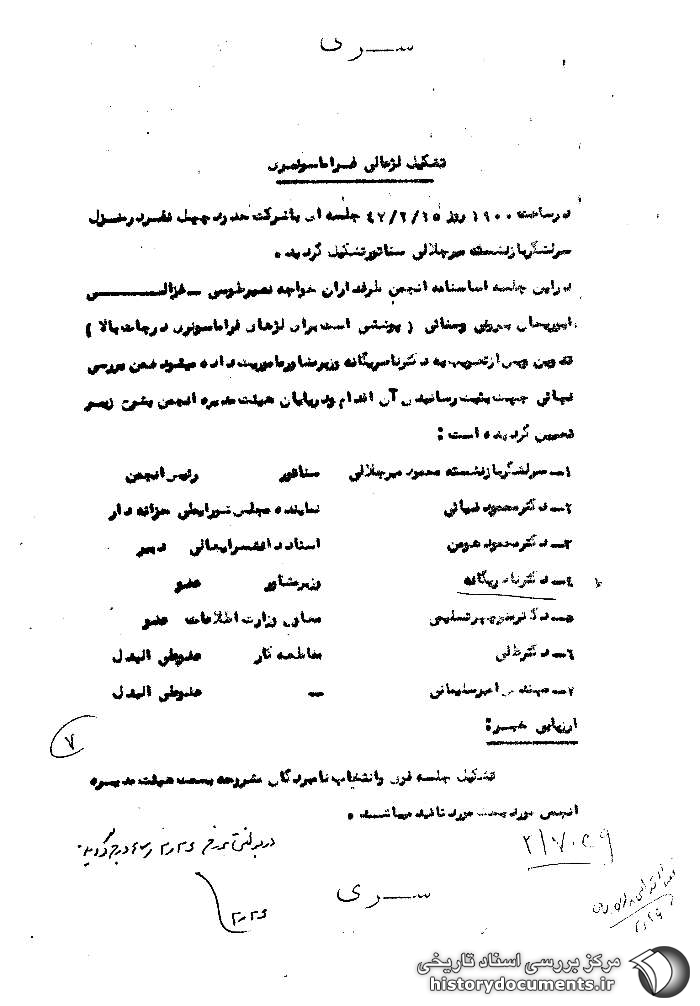 سری
تشکیل لژهای فراماسونری
در ساعت ۱۹۰۰ روز ۴۷/۲/۱۵ جلسه ای با شرکت حدود چهل نفر در منزل
سرلشگر بازنشسته میرجلالی سناتور تشکیل گردید.
در این جلسه اساسنامه انجمن طرفداران خواجه نصیر طوسی - غزالی
ابوریحان بیرونی وسنائی ( پوششی است برای لژهای فراماسونری درجات بالا )
تدوین وپس از تصویب به دکتر ناصر یگانه وزیر مشاور ماموریت داده میشود ضمن بررسی
نهائی جهت بثبت رسانیدن آن اقدام ودرپایان هیئت مدیره انجمن بشرح زیر
تعیین گردیده است :
۱- سرلشگر بازنشسته محمود میرجلالی سناتور رئیس انجمن
۲- دکتر محمود ضیائی نماینده مجلس شورایملی خزانه دار
۳- دکتر محمود هومن استاد دانشسرایعالی دبیر
۴- دکتر ناصر یگانه وزیر مشاور عضو
۵- دکتر منوچهر تسلیمی معاون وزارت اطلاعات عضو
۶- دکتر مقاطعه کار علیالبدل
۷- مهندس امیر سلیمانی - علیالبدل
۷
ارزیابی خبر :
تشکیل جلسه فوق وانتخاب نامبردگان مشروحه بسمت هیئت مدیره
انجمن مورد بحث مورد تائید میباشد .
در بولتن مورخ درج گردید
سری
مرکز بررسی اسناد تاریخی
historydocuments.ir